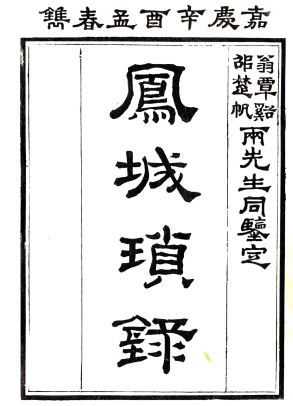 嘉慶辛酉孟春鐫
翁覃谿
邵楚帆
兩先生同鑒定
鳳城瑣錄